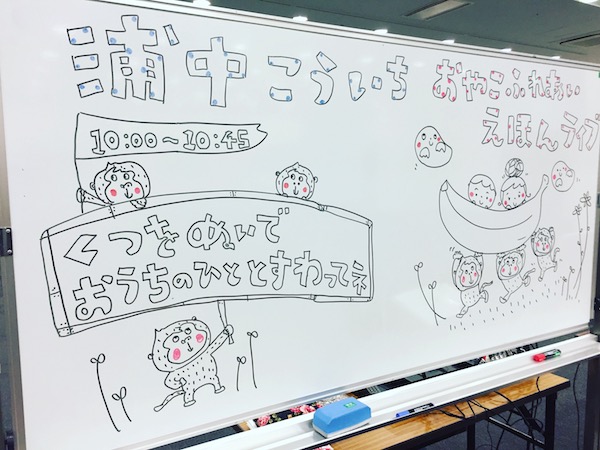 浦中こういち おやこふれあい
えほんライブ
10:00～10:45
くつをぬいで
おうちのひととすわってネ